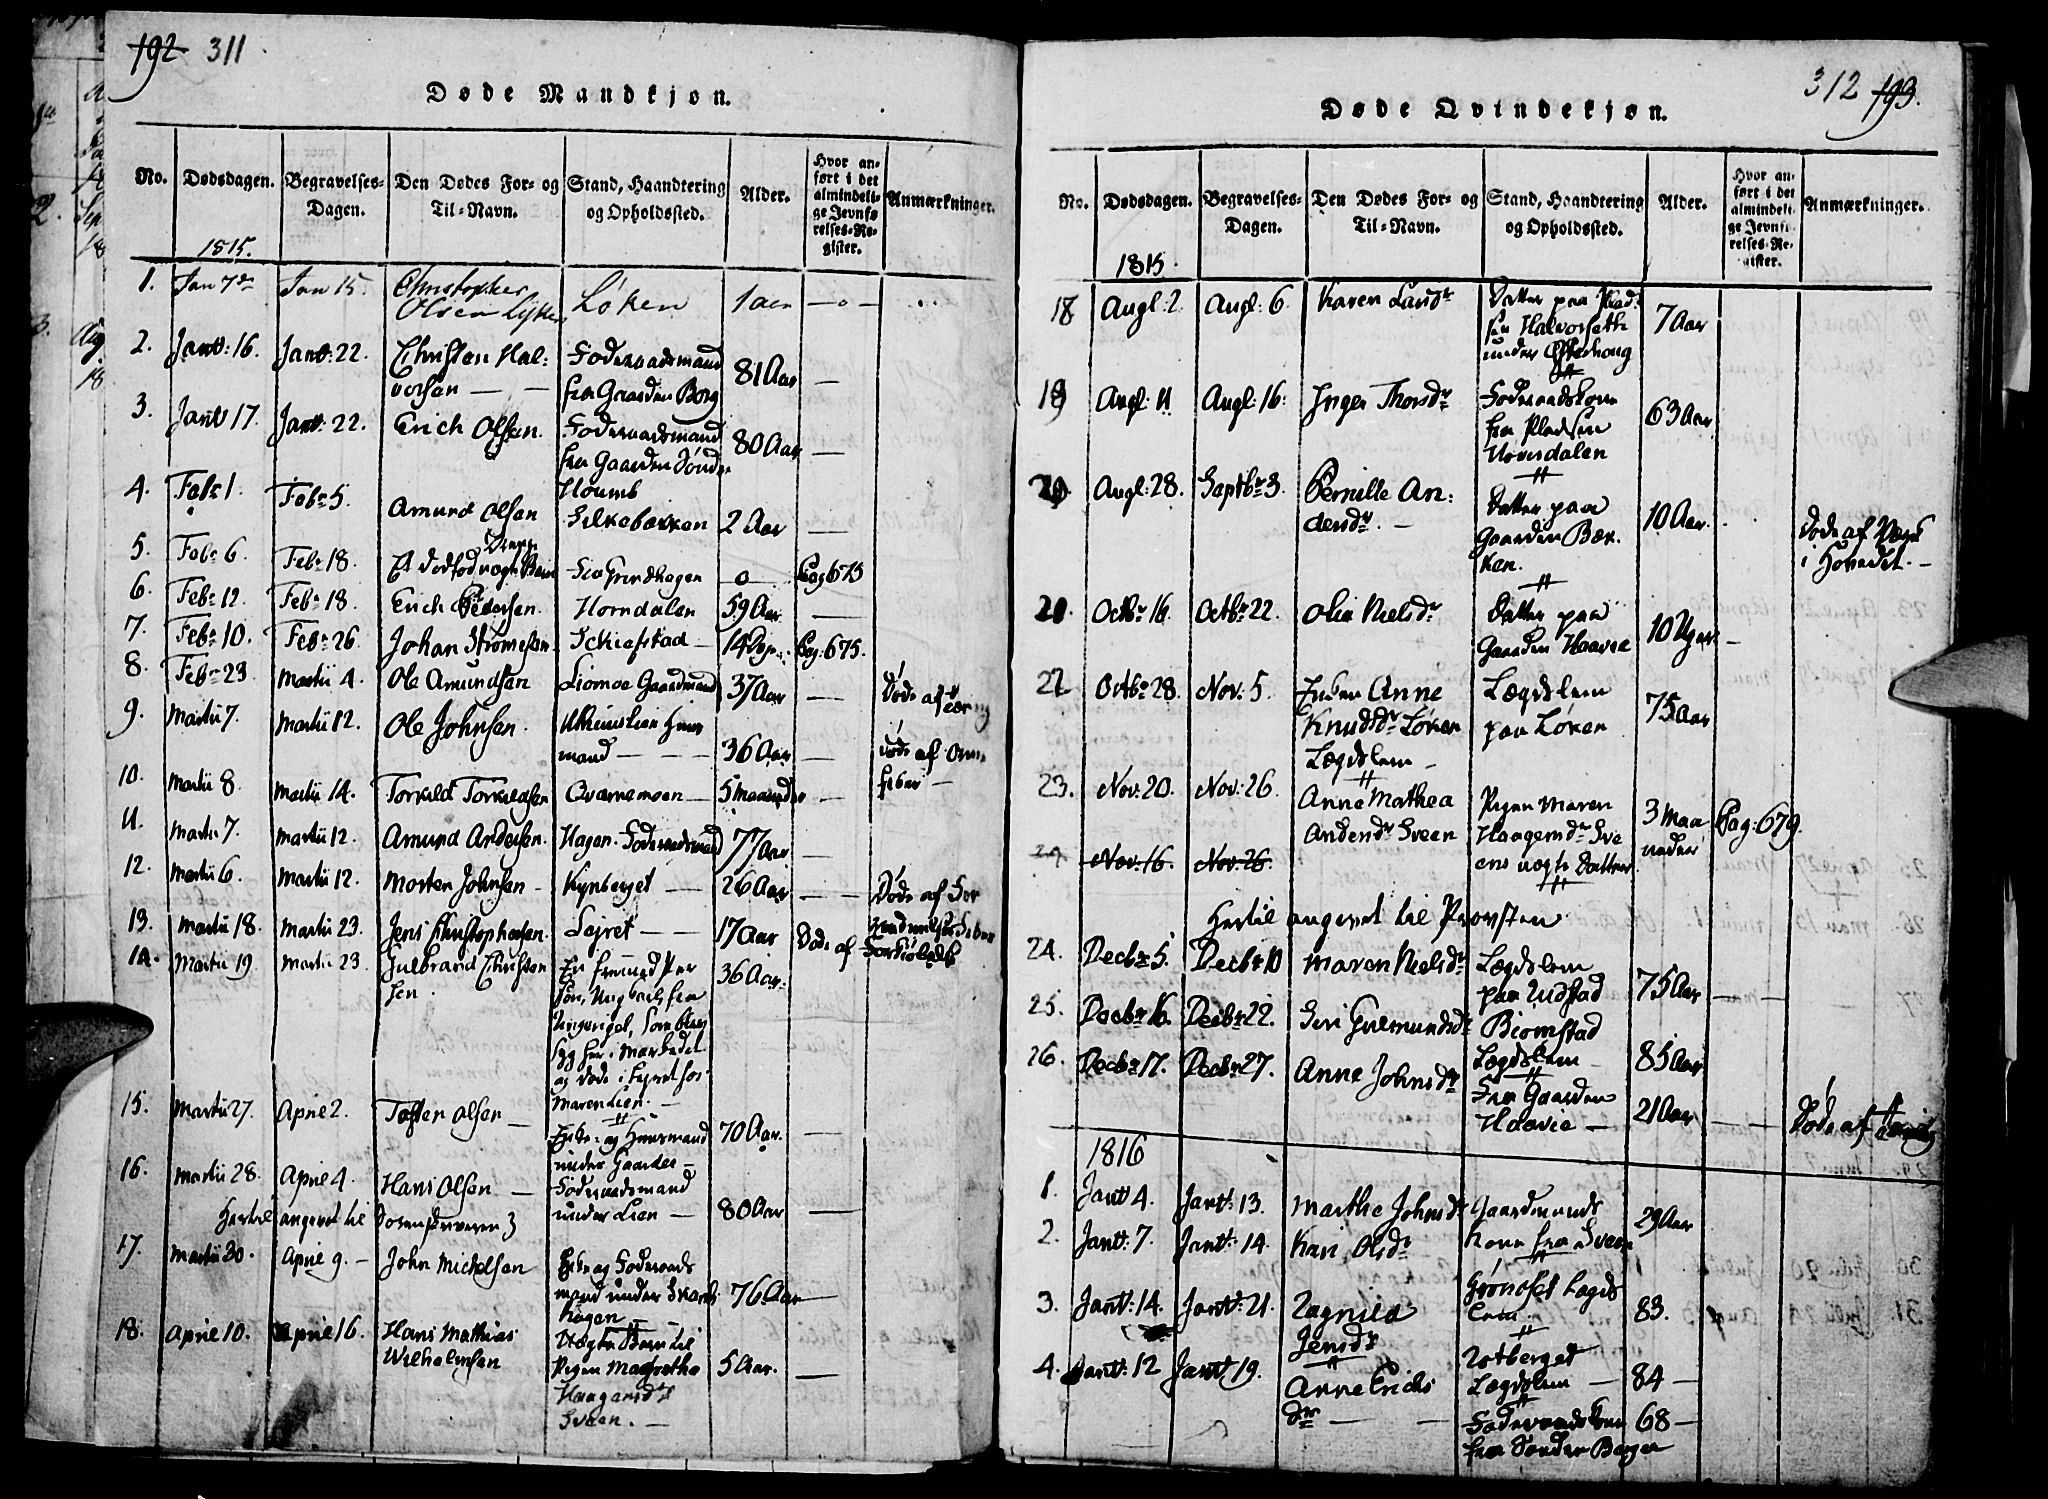 192 311
Døde Mandkjøn.
No. Dødsdagen. Begravelses-Dagen. Den Dødes For- og Til-Navn. Stand, Haandtering og Opholdssted. Alder. Hvor anført i det almindelige Jevnførelses-Register. Anmærkninger.
1815.
1. Jan 7de Jan 15. Christopher Olsen Løken 1 aar — o —
2. Janv: 16. Janv: 22. Christen Halvorsen — — Føderaadsmand fra Gaarden Berg 81 Aar —
3. Janv 17. Janv: 22. Erich Olsen. Føderaadsmand fra Gaarden Sønder Houmb 80 Aar —
4. Febr 1. Febr 5. Amund Olsen Silkebækken 2 Aar —
5. Febr 6. Febr 18. Et dødfød uægte Drenge Barn Grindhagen o Pag 675
6. Febr 12. Febr 18. Erich Pedersen. Horndalen 59 Aar —
7. Febr 10. Febr 26. Johan Skiefstad — 14 Pag: 675.
8. Febr 23. Martii 4. Ole Amundsen Liomoe Gaardmand 37 Aar — Døde af
9. Martii 7. Martii 12. Ole Johnsen. mand — — 36 Aar — døde af feber —
10. Martii 8. Martii 14. Torkild Torkildsen Qværnemoen — 5 maaneder —
11. Martii 7. Martii 12. Amund Andersen. Hagen. Føderaadsmand 77 Aar —
12. Martii 6. Martii 12. Morten Johnsen — Kynberget — 26 Aar — — Døde af
13. Martii 18. Martii 23. Jens Christophersen. Lejret — — 17 Aar Døde af
14. Martii 19. Martii 23. Gulbrand Christensen. En fremmed Per son, Ungkarl fra som blev syg her i Markedet og døde i 36 Aar.
15. Martii 27. April 2. Tosten Olsen — Enke- og Huusmand under Gaarder — 70 Aar. —
16. Martii 28. April 4. Hans Olsen — Føderaadsmand under Lien — 80 Aar —
Hertil angevet til Sorenskriveren }
17. Martii 30. April 9. — John Mickelsen Enke og Føderaads mand under hagen — 76 Aar —
18. April 10. April 16. Hans Mathias Wilhelmsen Uægte Barn til Pigen Magretha Haagensdr Sveen. — 5 Aar. —
312 193.
Døde Qvindekjøn.
No. Dødsdagen. Begravelses-Dagen. Den Dødes For- og Til-Navn. Stand, Haandtering og Opholdssted. Alder. Hvor anført i det almindelige Jevnførelses-Register. Anmærkninger.
1815.
18 Augl: 2. Augl: 6. Karen Larsdr Datter paa Pladsen Halvorseth under 7 Aar
19 Augl: 11 Augl: 16. Inger Thorsdr Føderaadskone fra Pladsen Hovisdalen 63 Aar
20. Augl: 28. Septbr 3. Pernille Andersdr. — Datter paa Gaarden Bækken. 10 Aar. Døde af i Hovedet. —
21. Octbr 16. Octbr 22. Olia Nielsdr Datter paa Gaarden Haavie 10 Uger —
22 Octbr 28. Nov: 5. Enken Anne Knudsdr Løken Lægdslem — Lægdslem paa Løken 75 Aar
23. Nov: 20. Nov: 26. Anne Mathea Andersdr Sveen Pigen Maren Haagensdr Sveens uægte Datter 3 Maaneder Pag: 679.
Nov: 16. Nov: 26.
Hertil angevet til Provsten
24. Decbr 5. Decbr 10 Maren Nielsdr Lægdslem paa Udstad 75 Aar — —
25. Decbr 16. Decbr 22. Siri Gulmundsdr Biørnstad Lægdslem — 85 Aar
26. Decbr 17. Decbr 27. Anne Johnsdr Fra Gaarden Haavie — 21 Aar — — Døde af
1816
1. Janv 4. Janv: 13. Marthe Johnsdr Gaardmands Kone fra Sveen 29 Aar
2. Janv: 7. Janv: 14. Kari Olsdr Grønoset Lægdslem 83.
3. Janv: 14. Janv: 21. Ragnild Jensdr Rotberget Lægdslem — 84 —
4. Janv: 12 Janv: 19. Anne Erichsdr — — Føderaadskone fra Sønder Berger 68 —